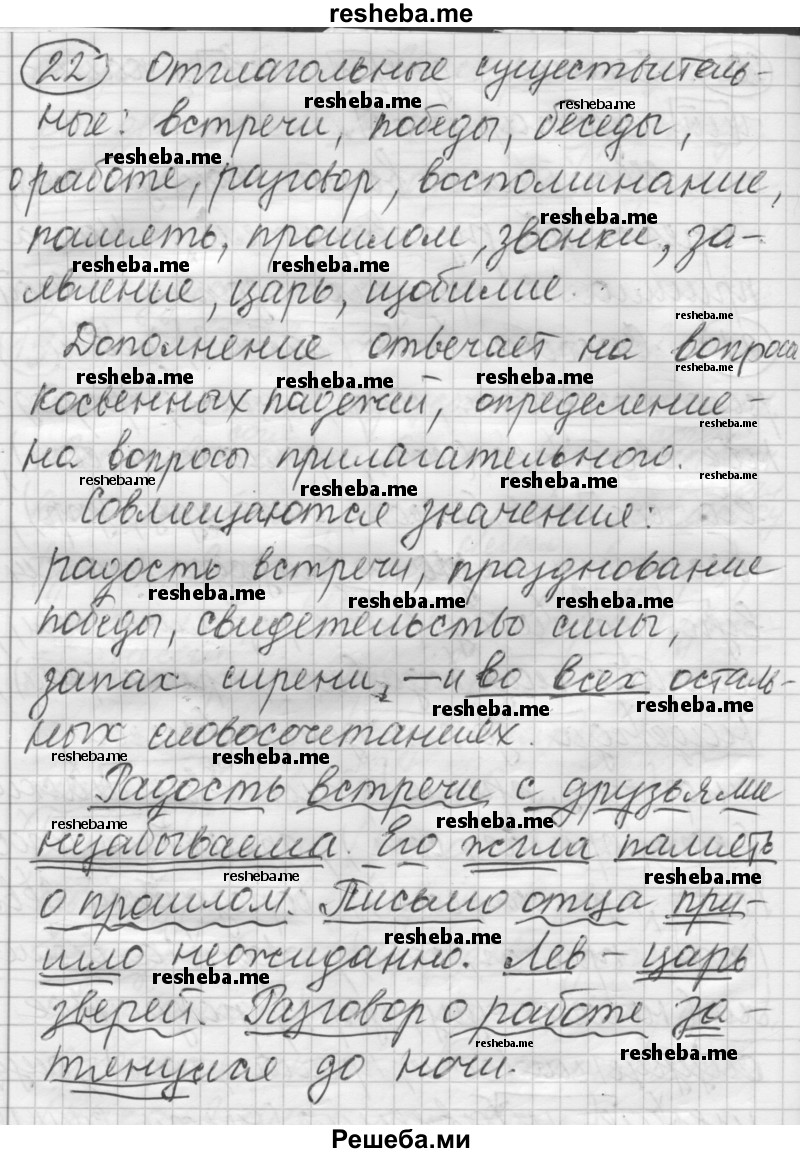 resheba.me
22 Отглагольные существитель-
ные: встречи, победы, беседы,
о работе, разговор, воспоминание,
память, прошлом, звонки, за-
явление, царь, изобилие.
Дополнение отвечает на вопросы
косвенных падежей, определение -
на вопросы прилагательного.
Совмещаются значения:
радость встречи, празднование
победы, свидетельство силы,
запах сирени, - и во всех осталь-
ных словосочетаниях.
Радость встречи с друзьями
незабываема. Его жгла память
о прошлом. Письмо отца при-
шло неожиданно. Лев - царь
зверей. Разговор о работе за-
тянулся до ночи.
Решеба.ми